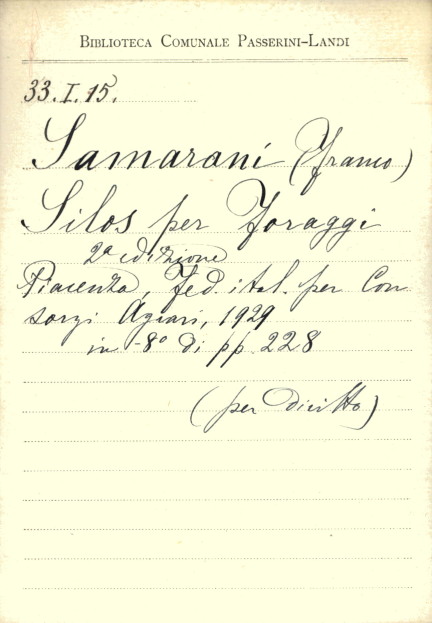 BIBLIOTECA COMUNALE PASSERINI-LANDI
33.I.15.
Samarani (Franco)
Silos per Foraggi
2ª edizione
Piacenza, Fed. ital. per Con
sorzi Agrari, 1929
in-8º di pp. 228
(per diritto)